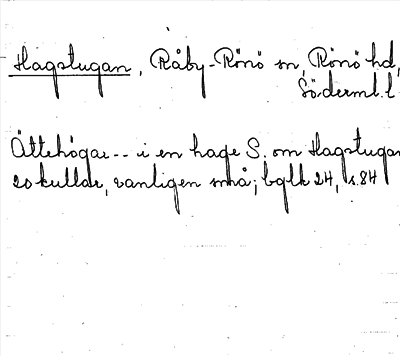 Hagstugan, Råby-Rönö sn, Rönö hd,
Söderml. l
Ättehögar -- i en hage S. om Hagstugan
20 kullar, vanligen små; bglk 24, s. 84